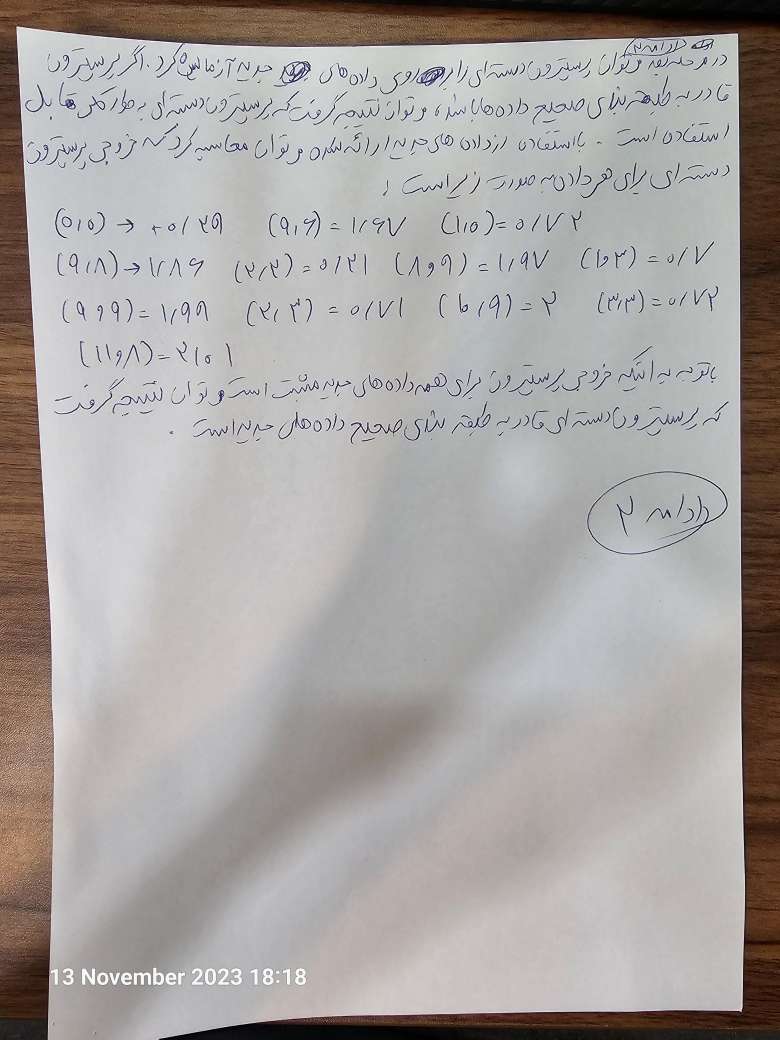 ادامه ۲
در مرحله بعد می توان پرسپترون دسته ای را بر روی داده های جدید آزمایش کرد. اگر پرسپترون
قادر به طبقه بندی صحیح داده ها باشد، می توان نتیجه گرفت که پرسپترون دسته ای به طور کلی قابل
استفاده است. با استفاده از داده های جدید ارائه شده می توان محاسبه کرد که خروجی پرسپترون
دسته ای برای هر داده به صورت زیر است:
(۰,۵) → +۰/۲۹ (۹,۶) = ۱/۶۷ (۱,۵) = ۰/۷۲
(۹,۸) → ۱/۸۶ (۲,۲) = ۰/۲۱ (۸,۹) = ۱/۹۷ (۱,۳) = ۰/۷
(۹,۹) = ۱/۹۹ (۲,۳) = ۰/۷۱ (۱۰,۹) = ۲ (۳,۳) = ۰/۷۲
(۱۱,۸) = ۲/۰۱
با توجه به اینکه خروجی پرسپترون برای همه داده های جدید مثبت است می توان نتیجه گرفت
که پرسپترون دسته ای قادر به طبقه بندی صحیح داده های جدید است.
ادامه ۲
13 November 2023 18:18